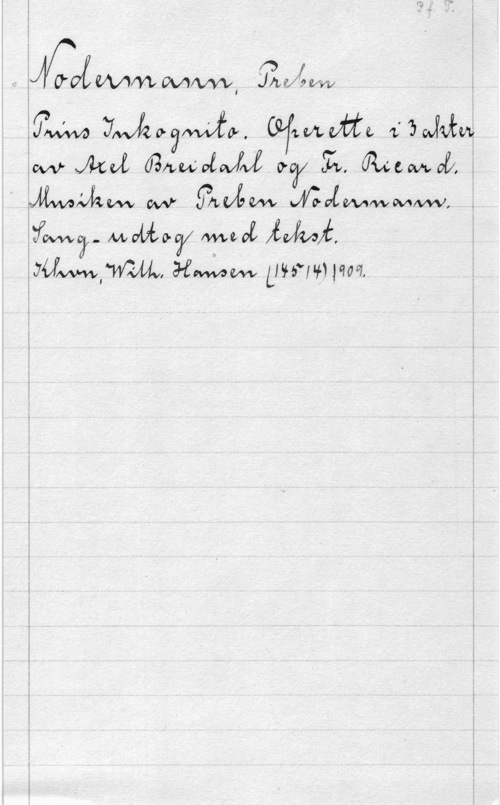 Pf T.
Nodermann, Preben
Prins Inkognito. Operette i 3 akter
av Axel Breidahl og Fr. Ricard.
Musiken av Preben Nodermann.
Sang-udtog med tekst.
Khvn, Wilh. Hansen (14514) 1909.